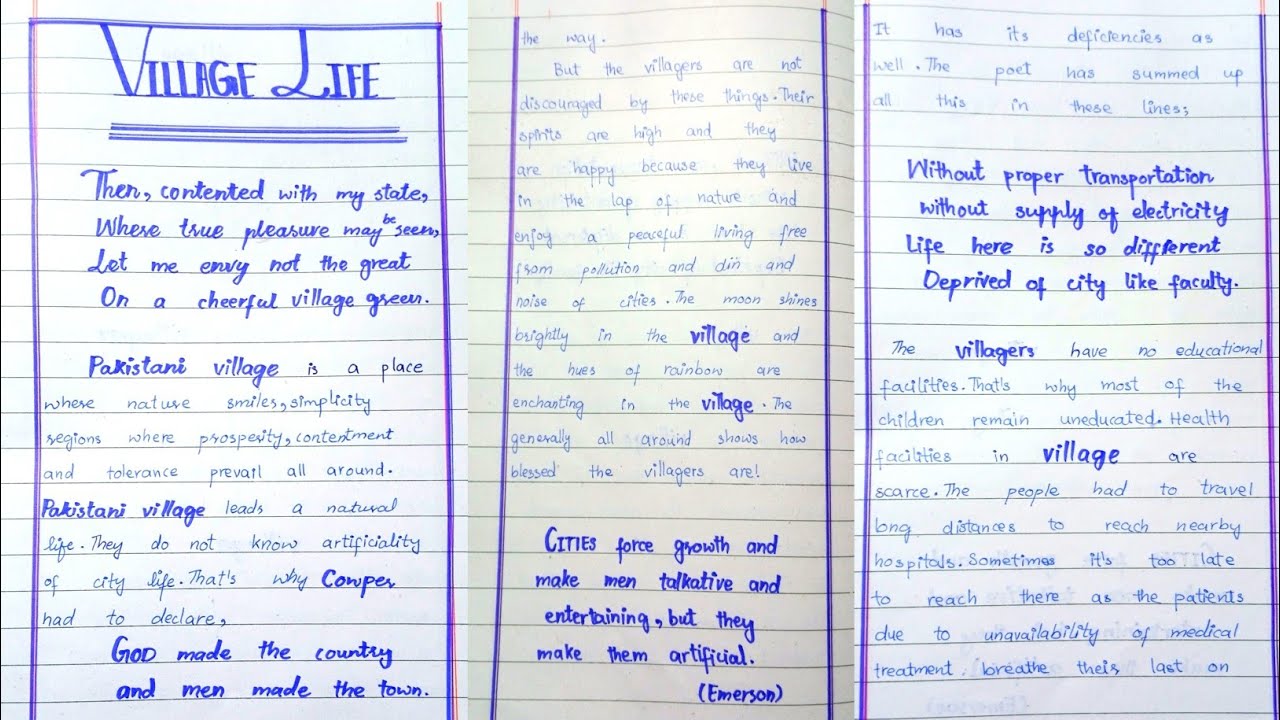 VILLAGE LIFE
Then, contented with my state,
Where true pleasure may be seen,
Let me envy not the great
On a cheerful village green.
Pakistani village is a place
where nature smiles, simplicity
regions where prosperity, contentment
and tolerance prevail all around.
Pakistani village leads a natural
life. They do not know artificiality
of city life. That's why Cowper
had to declare,
GOD made the country
and men made the town.
the way.
But the villagers are not
discouraged by these things. Their
spirits are high and they
are happy because they live
in the lap of nature and
enjoy a peaceful living free
from pollution and din and
noise of cities. The moon shines
brightly in the village and
the hues of rainbow are
enchanting in the village. The
generally all around shows how
blessed the villagers are!
CITIES force growth and
make men talkative and
entertaining, but they
make them artificial.
(Emerson)
It has its deficiencies as
well. The poet has summed up
all this in these lines;
Without proper transportation
without supply of electricity
Life here is so different
Deprived of city like faculty.
The villagers have no educational
facilities. That's why most of the
children remain uneducated. Health
facilities in village are
scarce. The people had to travel
long distances to reach nearby
hospitals. Sometimes it's too late
to reach there as the patients
due to unavailability of medical
treatment, breathe their last on